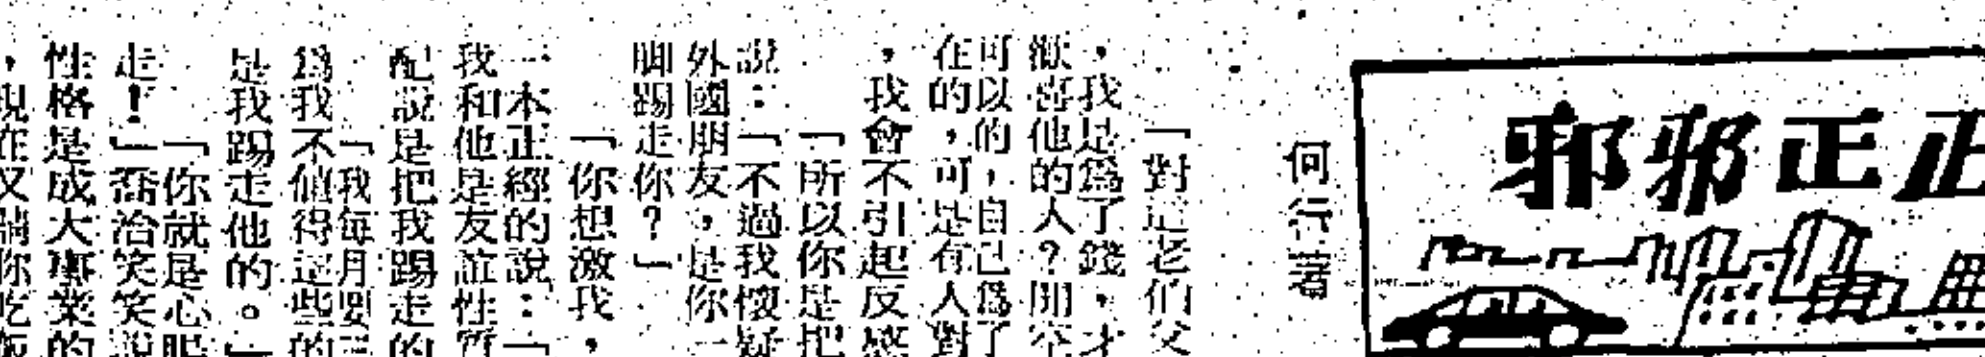 正正邪邪
何行著
「對這老們父
，我是爲了錢，才
歡喜他的人？開
可以的，自己爲了
在的，可是有人對
，我會不引起反感
「所以你是把
說：「不過我懷疑
外國朋友，是你一
脚踢走你？」
「你想激我，
一本正經的說：「
我和他是友誼性質
配說是把我踢走的
「我每月要三
爲我不値得這些的
是我踢走他的。」
「你就是心
走！」喬治笑笑說
性格是成大事業的
，現在又請你吃飯